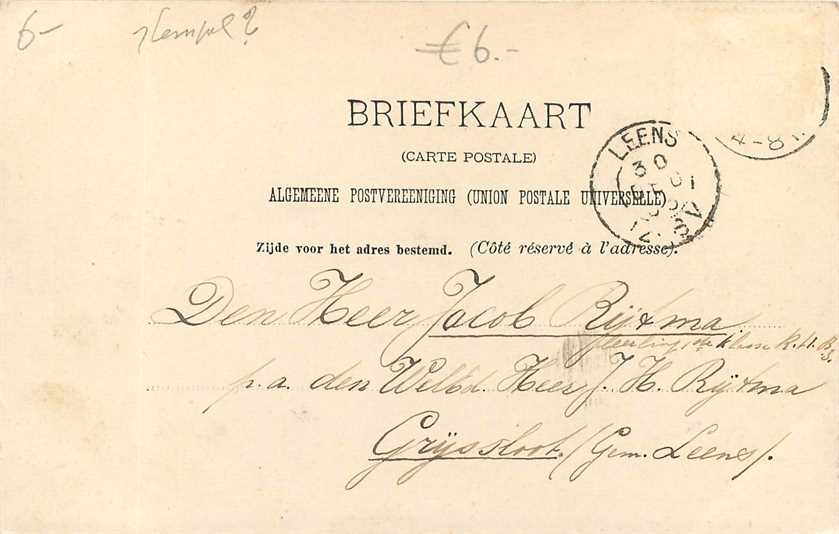 6-
stempel?
€6.-
BRIEFKAART
(CARTE POSTALE)
ALGEMEENE POSTVEREENIGING (UNION POSTALE UNIVERSELLE)
Zijde voor het adres bestemd. (Côté réservé à l'adresse).
LEENS
30
4-8
Den Heer Jacob Rijtma.
leerling 1ste klasse R.H.B.S.
p.a. den WelEd. Heer J. H. Rijtma
Grijssloot. (Gem. Leens).